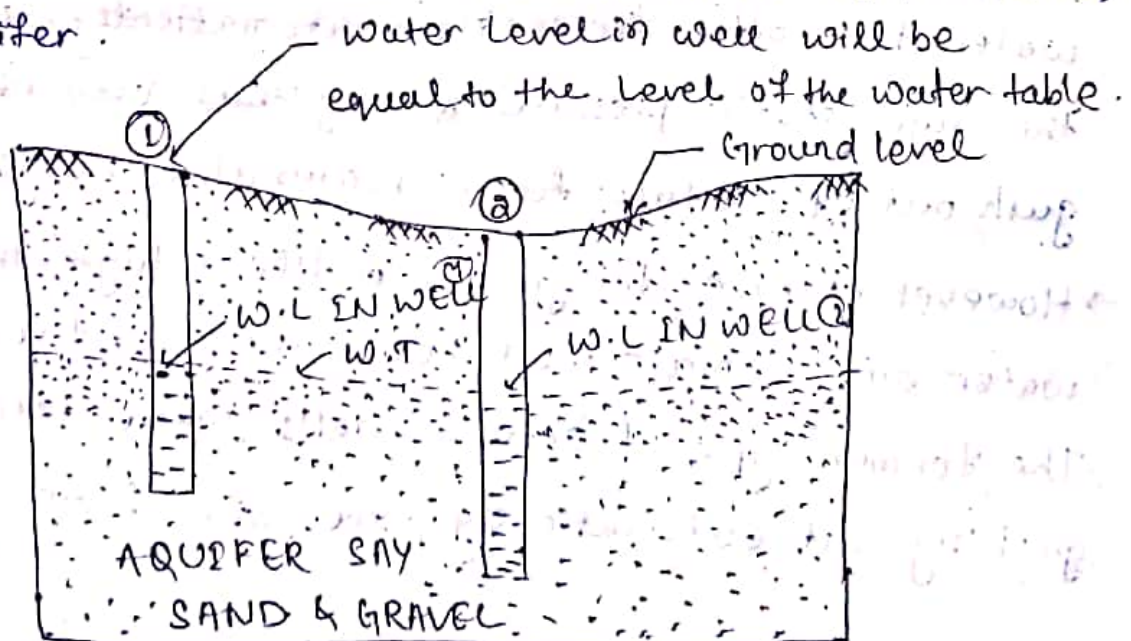 ifer.
water level in well will be
equal to the level of the water table.
①
Ground level
②
W.L IN WELL ①
W.T
W.L IN WELL ②
AQUIFER SAY
SAND & GRAVEL